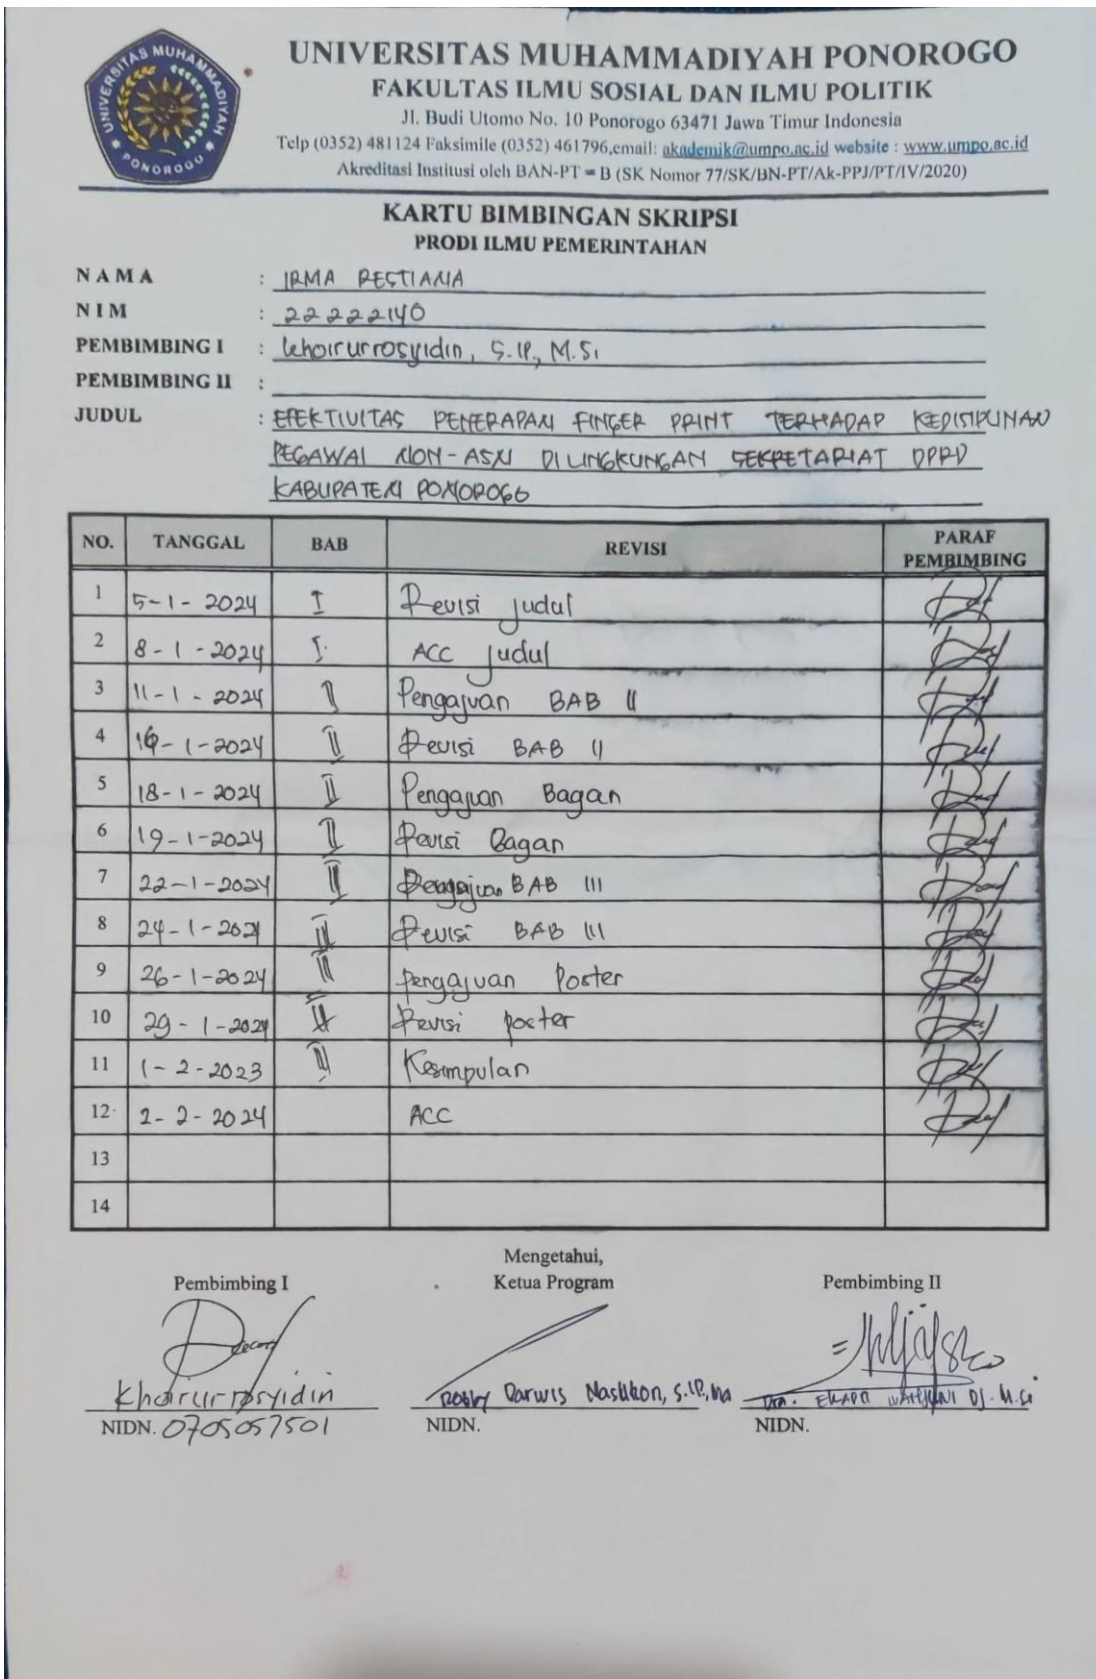 UNIVERSITAS MUHAMMADIYAH PONOROGO
UNIVERSITAS MUHAMMADIYAH PONOROGO
FAKULTAS ILMU SOSIAL DAN ILMU POLITIK
Jl. Budi Utomo No. 10 Ponorogo 63471 Jawa Timur Indonesia
Telp (0352) 481124 Faksimile (0352) 461796,email: akademik@umpo.ac.id website : www.umpo.ac.id
Akreditasi Institusi oleh BAN-PT = B (SK Nomor 77/SK/BN-PT/Ak-PPJ/PT/IV/2020)
KARTU BIMBINGAN SKRIPSI
PRODI ILMU PEMERINTAHAN
NAMA : IRMA RESTIANA
NIM : 22222140
PEMBIMBING I : Khoirurrosyidin, S.IP., M.Si
PEMBIMBING II :
JUDUL : EFEKTIVITAS PENERAPAN FINGER PRINT TERHADAP KEDISIPLINAN
PEGAWAI NON-ASN DI LINGKUNGAN SEKRETARIAT DPRD
KABUPATEN PONOROGO
NO. TANGGAL BAB REVISI PARAF PEMBIMBING
1 5-1-2024 I Revisi judul
2 8-1-2024 I. ACC judul
3 11-1-2024 II Pengajuan BAB II
4 16-1-2024 II Revisi BAB II
5 18-1-2024 II Pengajuan Bagan
6 19-1-2024 II Revisi Bagan
7 22-1-2024 III Pengajuan BAB III
8 24-1-2024 III Revisi BAB III
9 26-1-2024 III Pengajuan Poster
10 29-1-2024 Revisi poster
11 1-2-2023 III Kesimpulan
12 2-2-2024 ACC
13
14
Mengetahui,
Pembimbing I Ketua Program Pembimbing II
Khoirurrosyidin Robby Darwis Nasution, S.IP, MA Dra. EKAPTI WAHJUNI DJ. M.Si
NIDN. 0705057501 NIDN. NIDN.